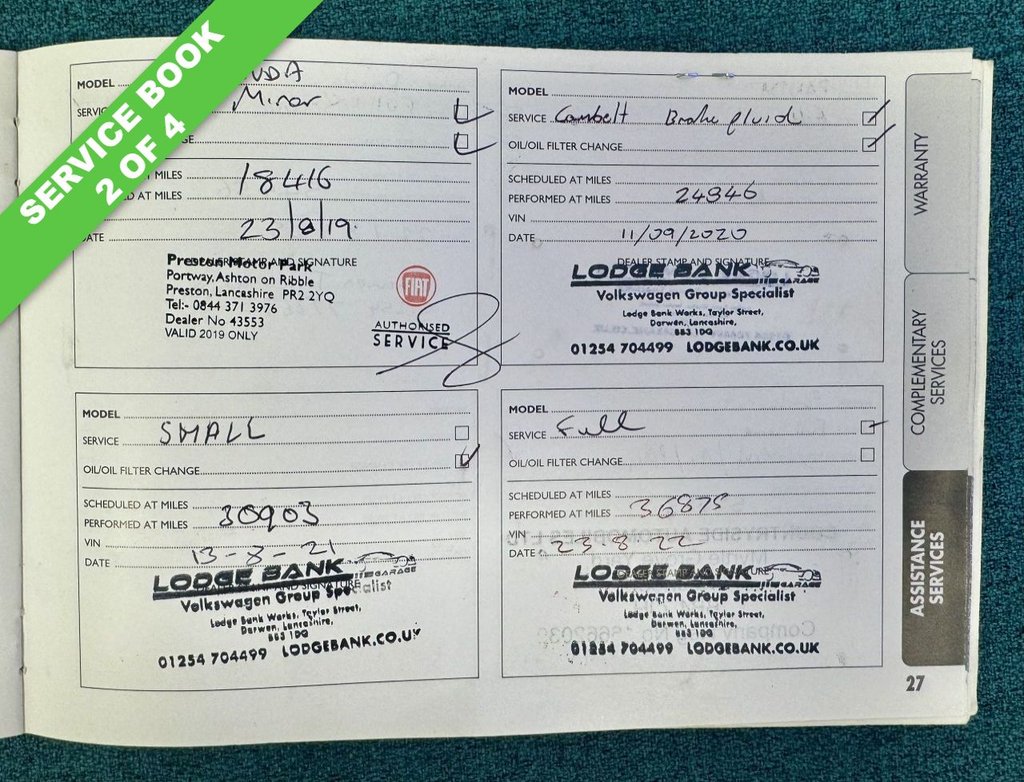 SERVICE BOOK
2 OF 4
MODEL
SERVICE Minor
MILES 18416
AT MILES
DATE 23/8/19
DEALER STAMP AND SIGNATURE
Preston Motor Park
Portway, Ashton on Ribble
Preston, Lancashire PR2 2YQ
Tel:- 0844 371 3976
Dealer No 43553
VALID 2019 ONLY
FIAT
AUTHORISED
SERVICE
MODEL
SERVICE Cambelt Brake fluid
OIL/OIL FILTER CHANGE
SCHEDULED AT MILES
PERFORMED AT MILES 24946
VIN
DATE 11/09/2020
DEALER STAMP AND SIGNATURE
LODGE BANK
GARAGE
Volkswagen Group Specialist
Lodge Bank Works, Taylor Street,
Darwen, Lancashire,
BB3 1DQ
01254 704499 LODGEBANK.CO.UK
MODEL
SERVICE SMALL
OIL/OIL FILTER CHANGE
SCHEDULED AT MILES
PERFORMED AT MILES 30903
VIN
DATE 13-8-21
LODGE BANK
GARAGE
AND SIGNATURE
Volkswagen Group Specialist
Lodge Bank Works, Taylor Street,
Darwen, Lancashire,
BB3 1DQ
01254 704499 LODGEBANK.CO.UK
MODEL
SERVICE Full
OIL/OIL FILTER CHANGE
SCHEDULED AT MILES
PERFORMED AT MILES 36875
VIN
DATE 23-8-22
LODGE BANK
GARAGE
Volkswagen Group Specialist
Lodge Bank Works, Taylor Street,
Darwen, Lancashire,
BB3 1DQ
01254 704499 LODGEBANK.CO.UK
WARRANTY
COMPLEMENTARY
SERVICES
ASSISTANCE
SERVICES
27